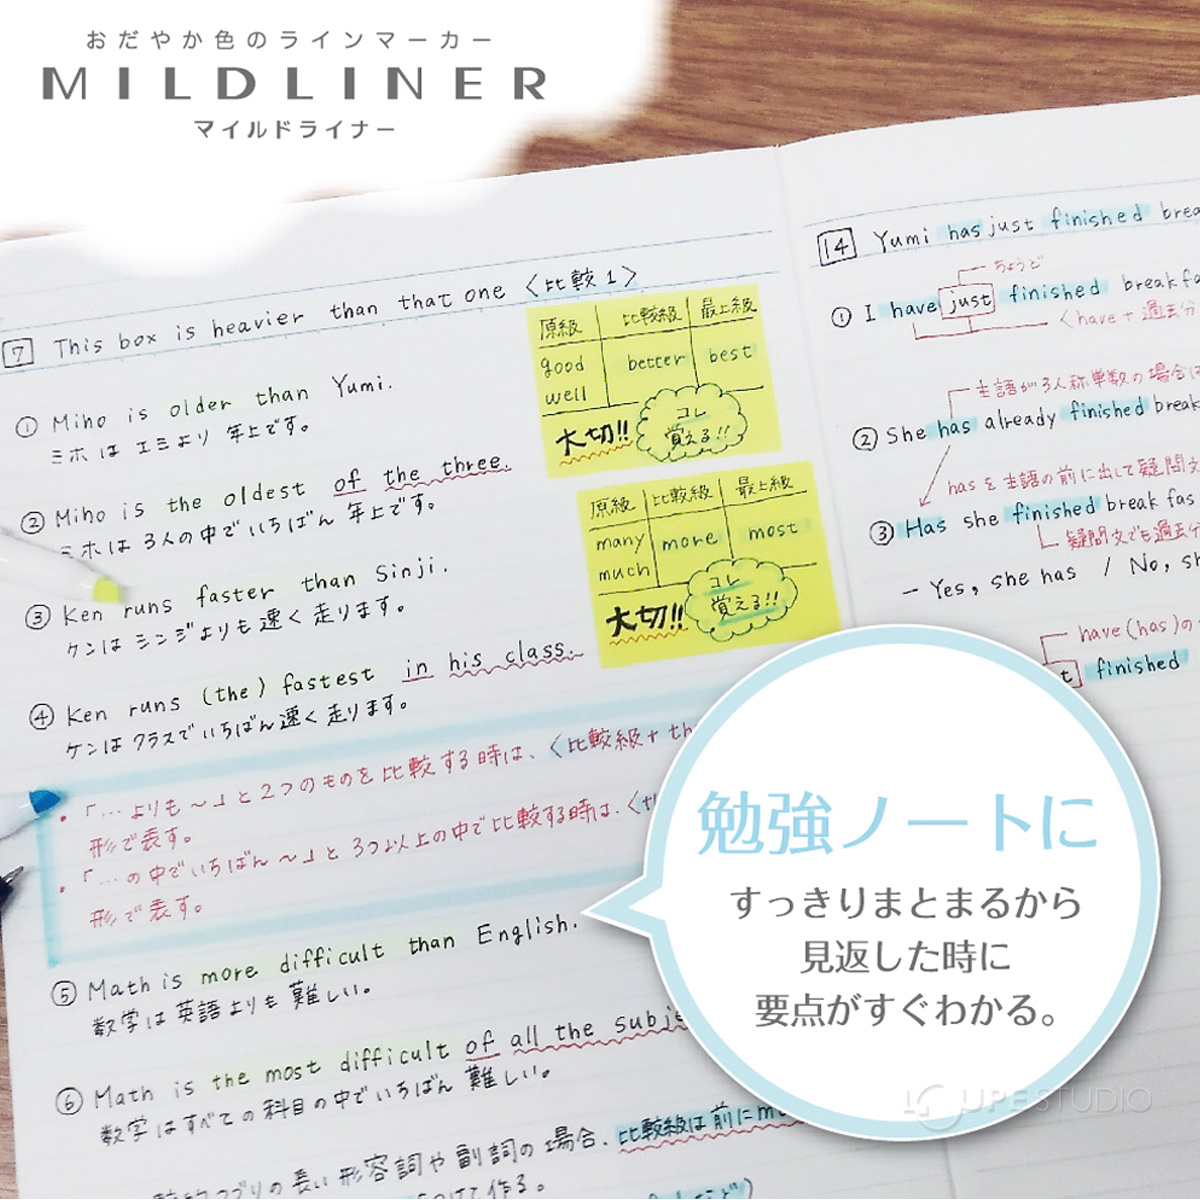 おだやか色のラインマーカー
MILDLINER
マイルドライナー
7 This box is heavier than that one 〈比較1〉
① Miho is older than Yumi.
ミホは エミより 年上です。
② Miho is the oldest of the three.
ミホは 3人の中で いちばん 年上です。
③ Ken runs faster than Sinji.
ケンは シンジよりも 速く 走ります。
④ Ken runs (the) fastest in his class.
ケンは クラスで いちばん 速く 走ります。
・「…よりも〜」と2つのものを比較する時は、〈比較級+th
形で表す。
・「…の中でいちばん〜」と3つ以上の中で比較する時は、〈th
形で表す。
⑤ Math is more difficult than English.
数学は英語よりも 難しい。
⑥ Math is the most difficult of all the subje
数学はすべての科目の中でいちばん 難しい。
の長い形容詞や副詞の場合、比較級は前にm
つけて作る。
原級 比較級 最上級
good better best
well
大切!! コレ
覚える!!
原級 比較級 最上級
many more most
much
大切!! コレ
覚える!!
14 Yumi has just finished brea
ちょうど
① I have just finished breakfa
〈have+過去分
主語が3人称単数の場合は
② She has already finished break
hasを主語の前に出して疑問文
③ Has she finished breakfas
疑問文でも過去分
- Yes, she has / No, sh
have(has)の
t finished
勉強ノートに
すっきりまとまるから
見返した時に
要点がすぐわかる。
LOUPE STUDIO